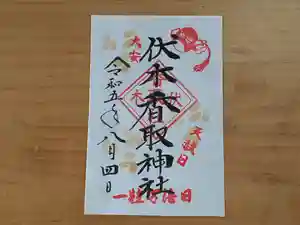 伏木香取神社
令和五年八月四日
大安
天赦日
一粒万倍日